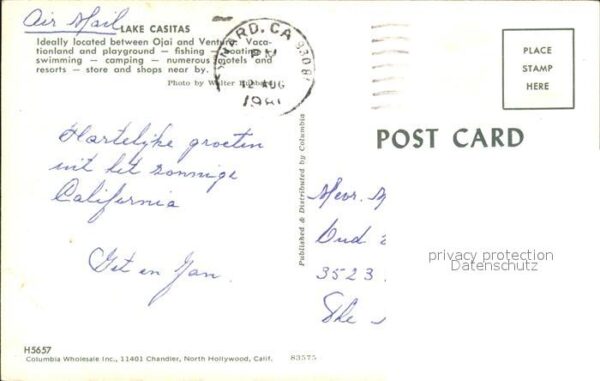 Air Mail
LAKE CASITAS
Ideally located between Ojai and Ventura. Vaca-
tionland and playground — fishing — boating —
swimming — camping — numerous motels and
resorts — store and shops near by.
Photo by Walter
NARD, CA 9308
PM
12 AUG
PLACE
STAMP
HERE
POST CARD
Hartelijke groeten
uit het zonnige
California
en Jan.
Published & Distributed by Columbia
Mevr.
Oud
3523
The
privacy protection
Datenschutz
H5657
Columbia Wholesale Inc., 11401 Chandler, North Hollywood, Calif.
83575